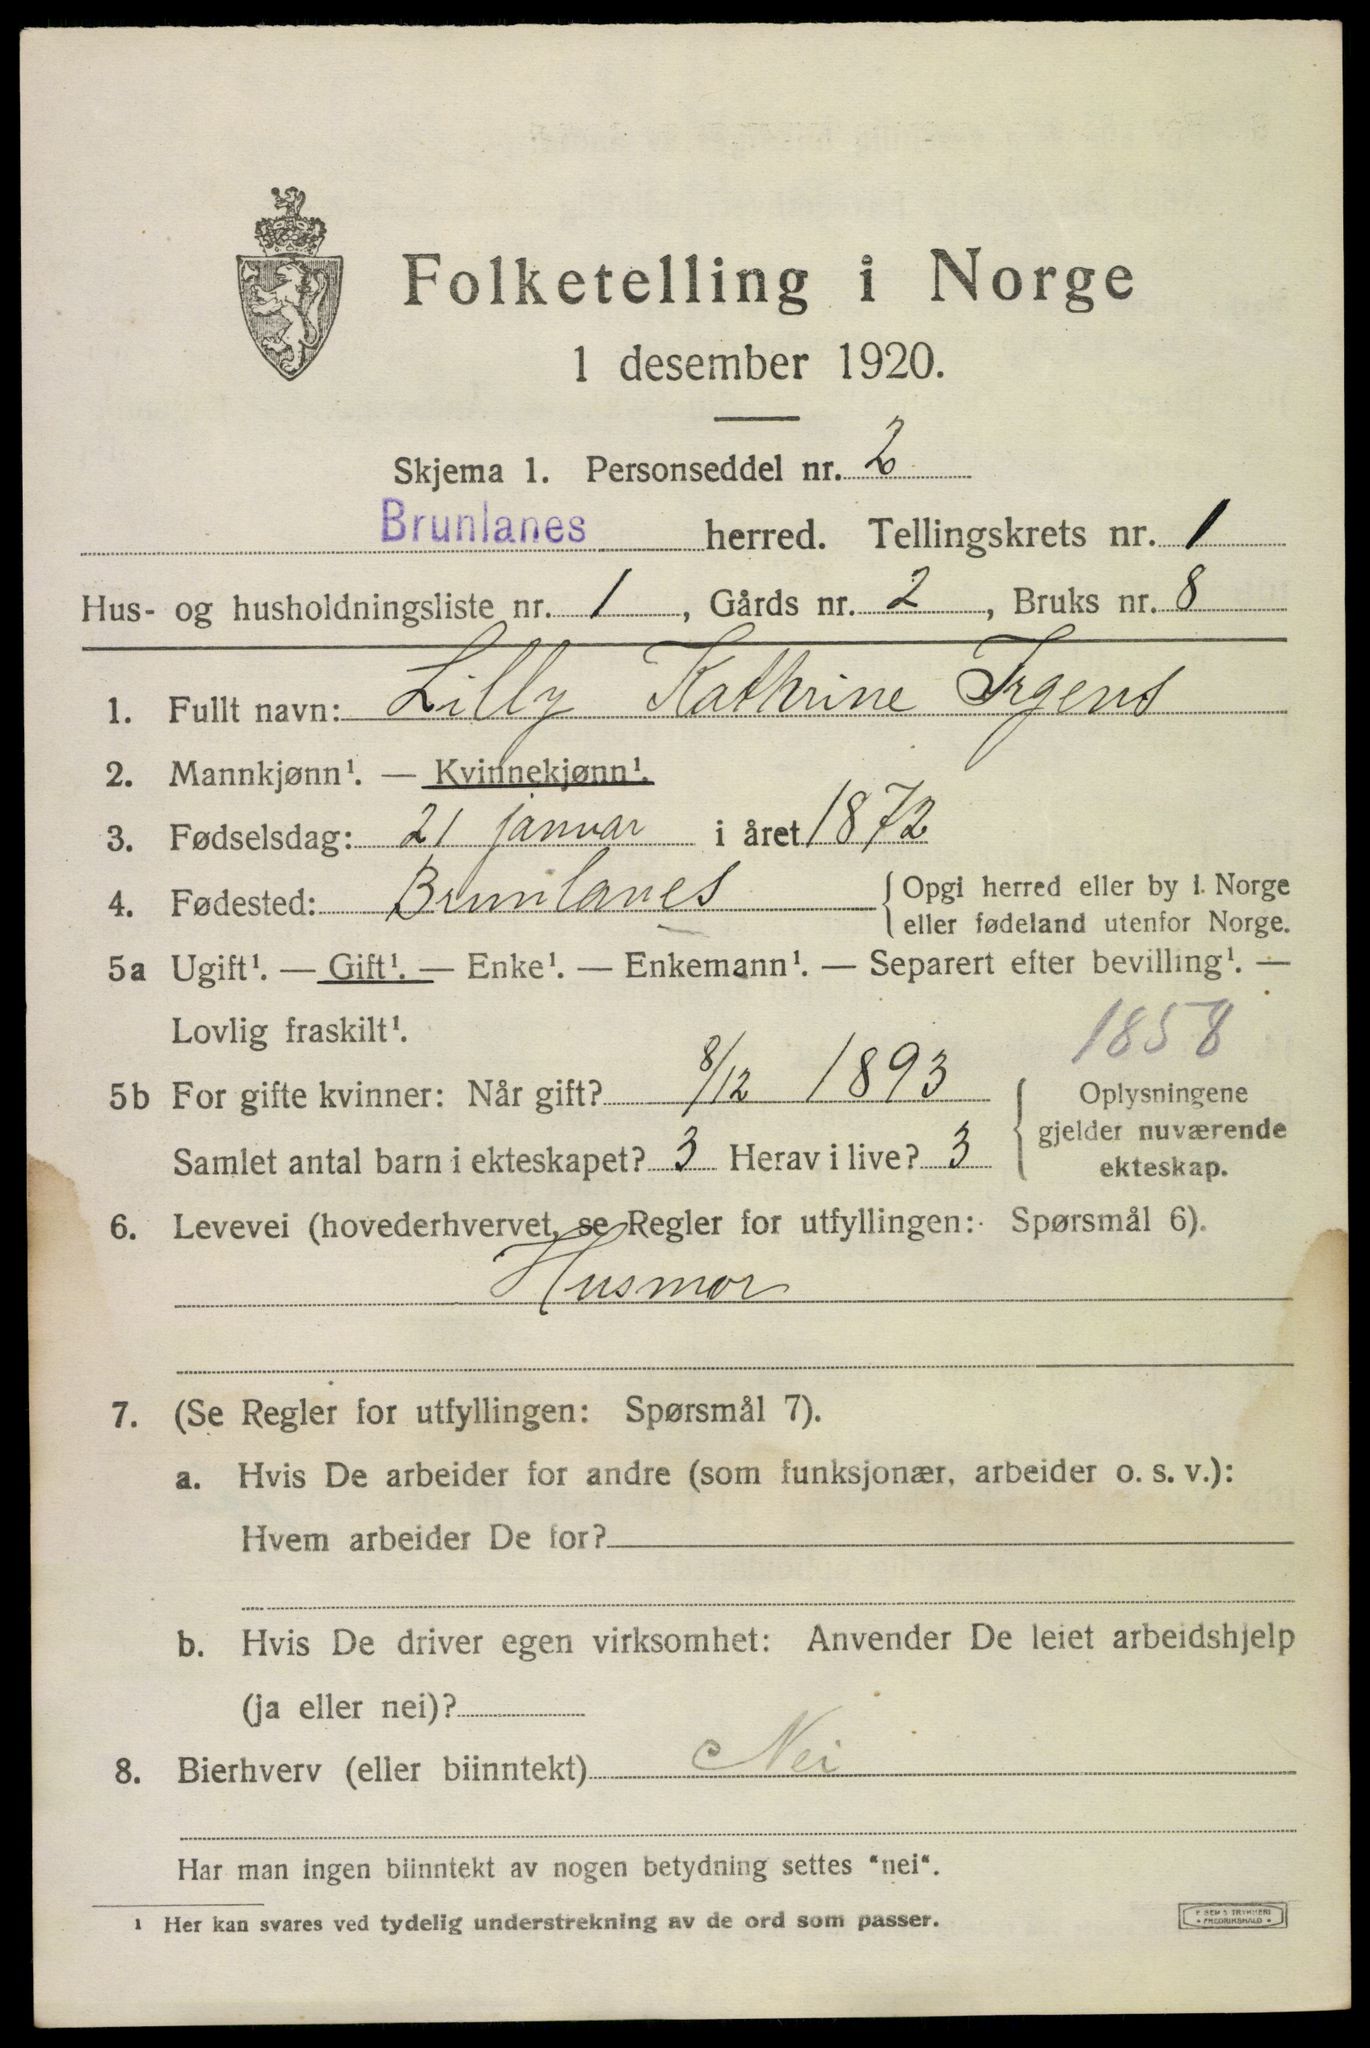 Folketelling i Norge
1 desember 1920.
Skjema 1. Personseddel nr. 2
Brunlanes herred. Tellingskrets nr. 1
Hus- og husholdningsliste nr. 1, Gårds nr. 2, Bruks nr. 8
1. Fullt navn: Lilly Kathrine Irgens
2. Mannkjønn¹. — Kvinnekjønn¹.
3. Fødselsdag: 21 januar i året 1872
4. Fødested: Brunlanes { Opgi herred eller by i Norge
eller fødeland utenfor Norge.
5a Ugift¹. — Gift¹. — Enke¹. — Enkemann¹. — Separert efter bevilling¹. —
Lovlig fraskilt¹.
1858
5b For gifte kvinner: Når gift? 8/12 1893
Samlet antal barn i ekteskapet? 3 Herav i live? 3
{ Oplysningene
gjelder nuværende
ekteskap.
6. Levevei (hovederhvervet, se Regler for utfyllingen: Spørsmål 6).
Husmor
7. (Se Regler for utfyllingen: Spørsmål 7).
a. Hvis De arbeider for andre (som funksjonær, arbeider o. s. v.):
Hvem arbeider De for?
b. Hvis De driver egen virksomhet: Anvender De leiet arbeidshjelp
(ja eller nei)?
8. Bierhverv (eller biinntekt) Nei
Har man ingen biinntekt av nogen betydning settes "nei".
¹ Her kan svares ved tydelig understrekning av de ord som passer.
FREDRIKSHALD